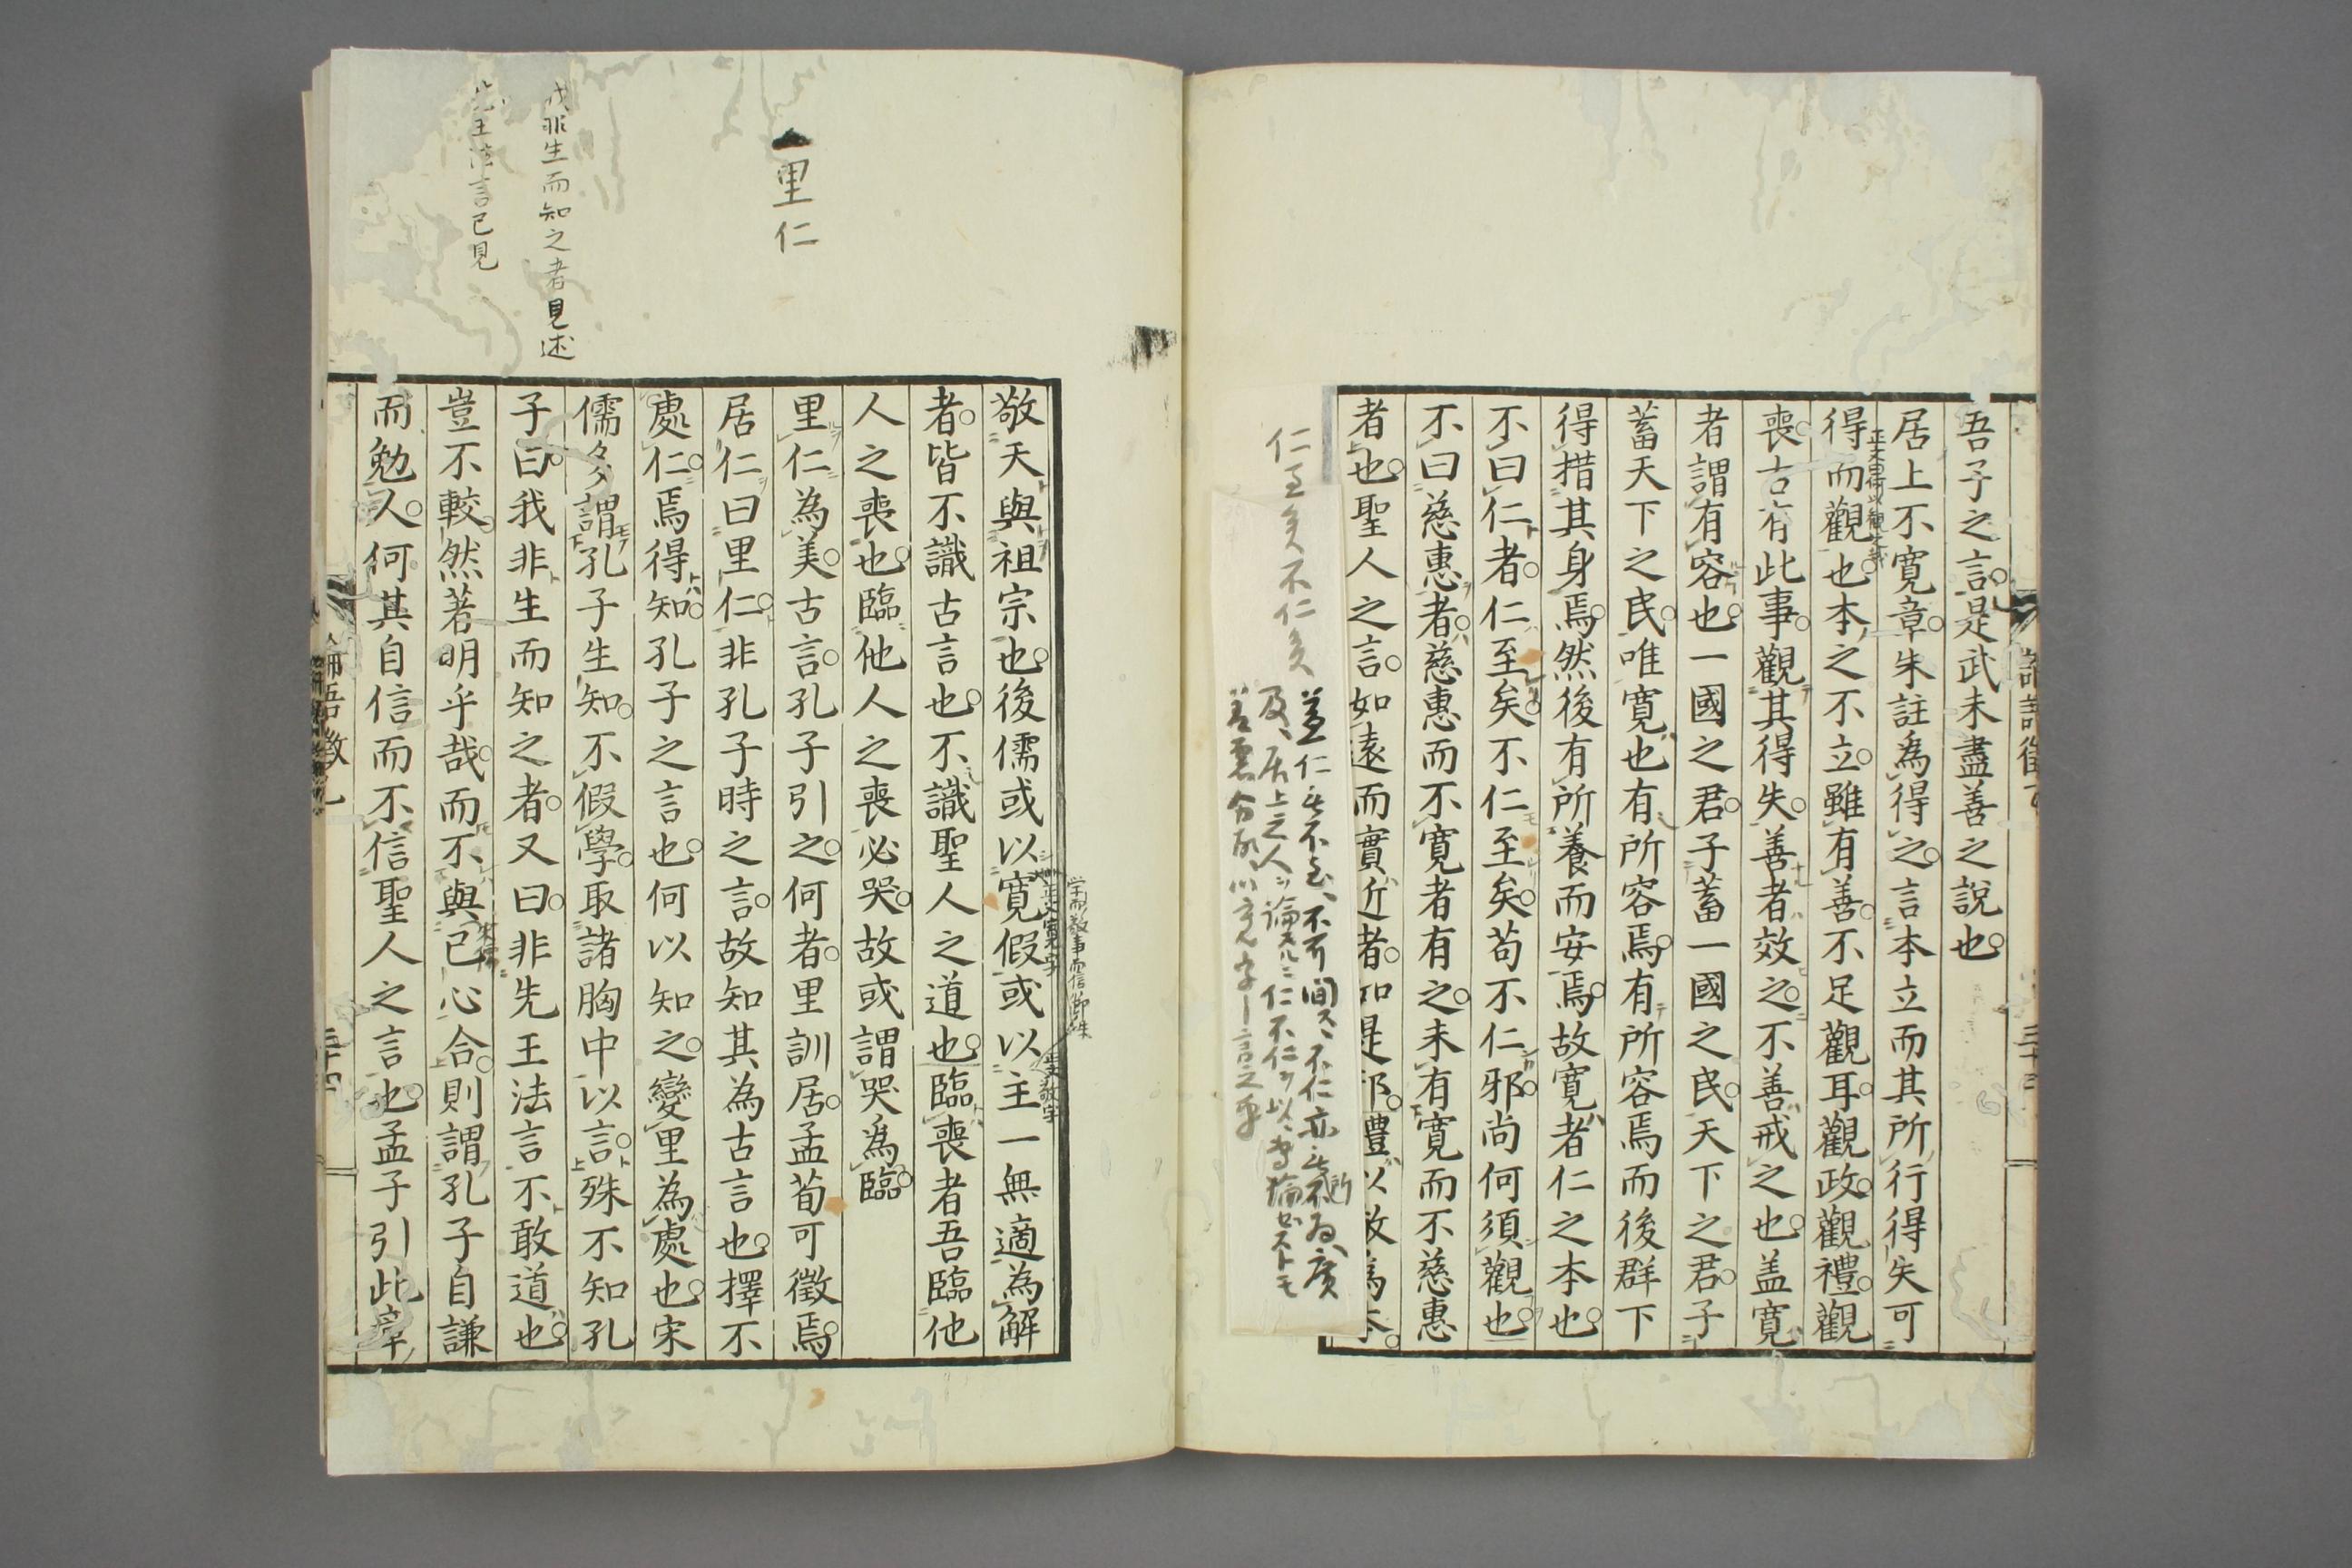 吾子之言是武未盡善之說也
居上不寬章朱註爲得之言本立而其所行得失可
得而觀也本之不立雖有善不足觀耳觀政觀禮觀
喪古有此事觀其得失善者效之不善戒之也盖寬
者謂有容也一國之君子蓄一國之民天下之君子
蓄天下之民唯寬也有所容焉有所容焉而後群下
得措其身焉然後有所養而安焉故寬者仁之本也
不曰仁者仁至矣不仁至矣苟不仁邪尚何須觀也
不曰慈惠者慈惠而不寬者有之未有寬而不慈惠
者也聖人之言如遠而實近者如是邪禮以敬為本
仁至矣不仁矣
敬天與祖宗也後儒或以寬假或以主一無適為解
者皆不識古言也不識聖人之道也臨喪者吾臨他
人之喪也臨他人之喪必哭故或謂哭爲臨
里仁
里仁為美古言孔子引之何者里訓居孟荀可徵焉
居仁曰里仁非孔子時之言故知其為古言也擇不
處仁焉得知孔子之言也何以知之變里為處也宋
儒多謂孔子生知不假學取諸胸中以言殊不知孔
我非生而知之者見述
子曰我非生而知之者又曰非先王法言不敢道也
先王法言已見
豈不較然著明乎哉而不與己心合則謂孔子自謙
而勉人何其自信而不信聖人之言也孟子引此章